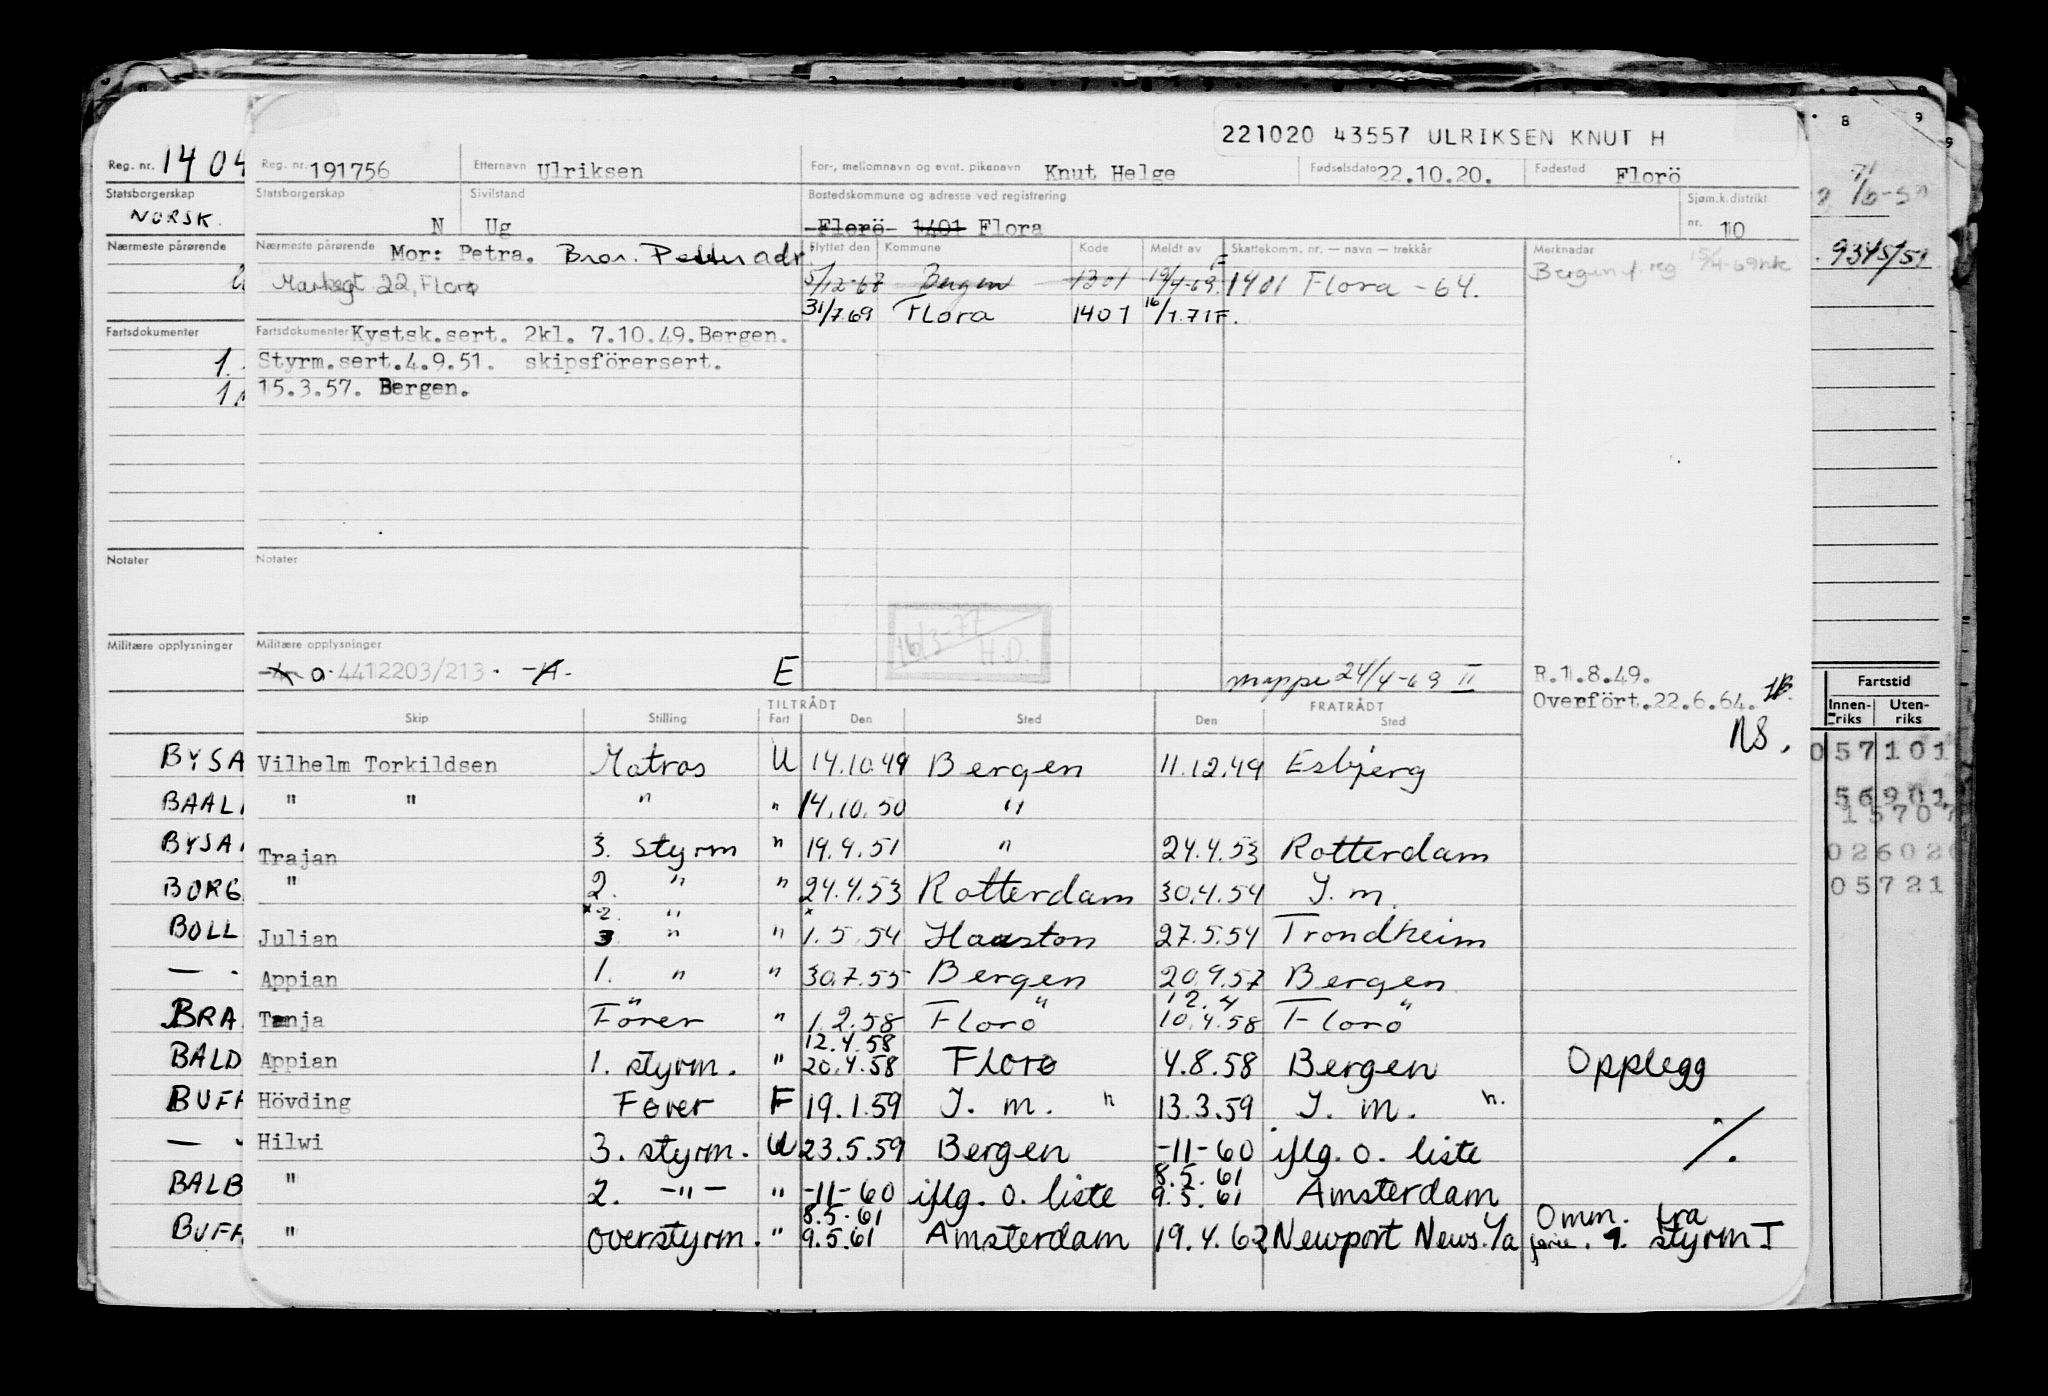 221020 43557 ULRIKSEN KNUT H
Reg. nr. 1404
Reg. nr. 191756 Etternavn Ulriksen For-, mellomnavn og evnt. pikenavn Knut Helge Fødselsdato 22.10.20. Fødested Florö
Statsborgerskap
NORSK.
Statsborgerskap N Sivilstand Ug Bostedskommune og adresse ved registrering Florö 1401 Flora Sjøm.k.distrikt nr. 10
Nærmeste pårørende
Nærmeste pårørende Mor: Petra. Bror. Petter adr. Flyttet den Kommune Kode Meldt av Skattekomm. nr. — navn — trekkår Merknadar
Markegt 22, Florø 5/12-67 Bergen 1301 19/4-69. F 1401 Flora - 64. Bergen f. reg
31/7 69 Flora 1401 16/1.71 F.
9345/51
Fartsdokumenter
Fartsdokumenter Kystsk.sert. 2kl. 7.10.49.Bergen.
1. Styrm.sert.4.9.51. skipsförersert.
15.3.57. Bergen.
Notater
Notater
16/3-77 H.D.
Militære opplysninger
Militære opplysninger
4412203/213. E mappe 24/4-69 II R.1.8.49.
Overfört.22.6.64.
NS.
Fartstid
Innen-riks Uten-riks
TILTRÅDT FRATRÅDT
Skip Stilling Fart Den Sted Den Sted
BYSA Vilhelm Torkildsen Matros U 14.10.49 Bergen 11.12.49 Esbjerg 057101
BAAL " " " " 14.10.50 " 56901
15707
BYSA Trajan 3. styrm " 19.4.51 " 24.4.53 Rotterdam 02602
BORG " 2. " " 24.4.53 Rotterdam 30.4.54 J. m. 05721
x 2. " x
BOLL Julian 3 " " 1.5.54 Houston 27.5.54 Trondheim
— Appian 1. " " 30.7.55 Bergen 20.9.57 Bergen
12.4
BRA Tanja Förer " 1.2.58 Florö 10.4.58 Florö
12.4.58
BALD Appian 1. styrm. " 20.4.58 Florø 4.8.58 Bergen Opplegg
BUFF Hövding Fører F 19.1.59 J. m. " 13.3.59 J. m. ".
— Hilwi 3. styrm. U 23.5.59 Bergen -11-60 iflg. o. liste ./.
8.5.61
BALB " 2. -"- " -11-60 iflg. o. liste 9.5.61 Amsterdam
8.5.61 Omm. fra
BUFF " overstyrm. " 9.5.61 Amsterdam 19.4.62 Newport News. Va 1. styrm I